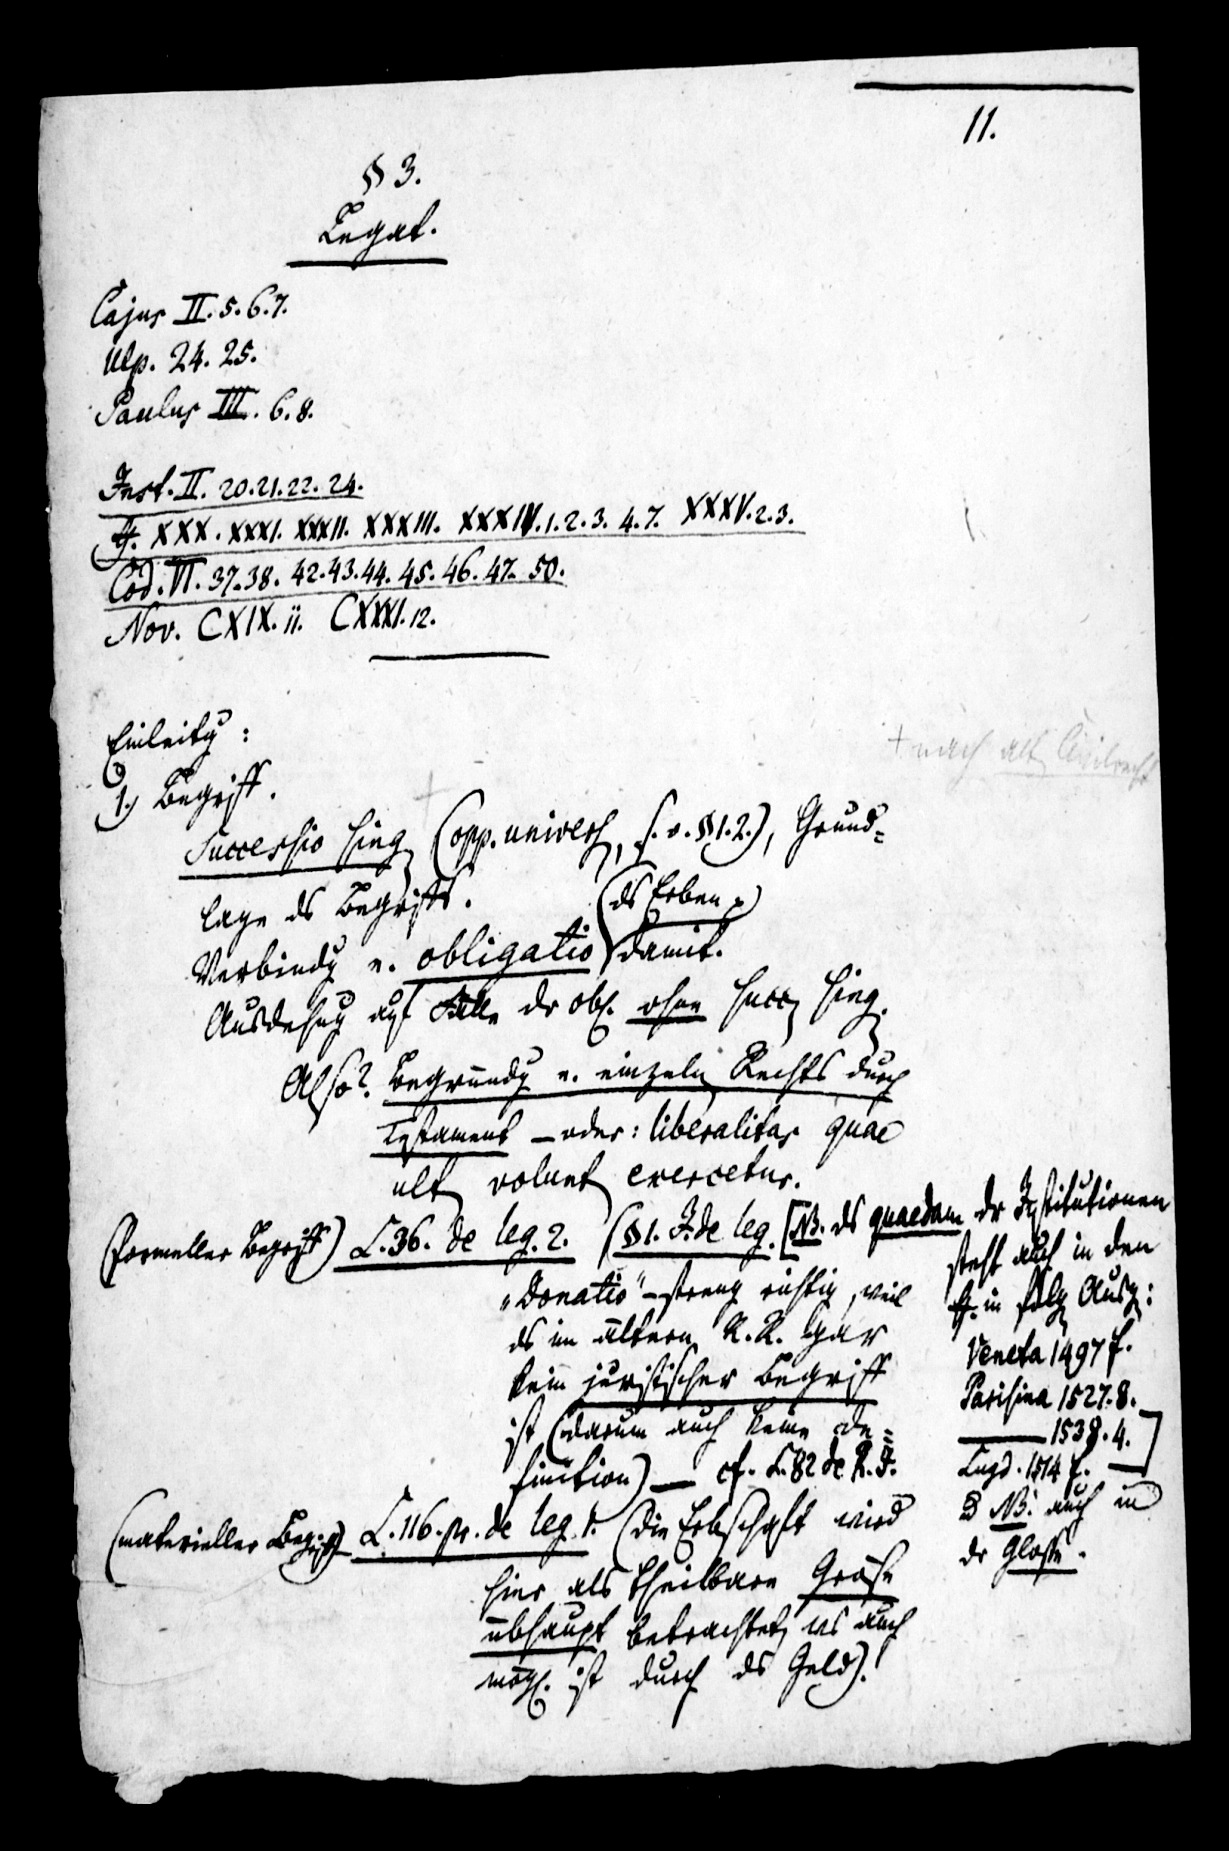 11.
§ 3.
Legat.
Cajus II. 5. 6. 7.
Ulp. 24. 25.
Paulus III. 6. 8.
Inst. II. 20. 21. 22. 24.
ff. XXX. XXXI. XXXII. XXXIII. XXXIV. 1. 2. 3. 4. 7. XXXV. 2. 3.
Cod. VI. 37. 38. 42. 43. 44. 45. 46. 47. 50.
Nov. CXIX. 11. CXXXI. 12.
Einleitg :
+ nach alt Civilrecht
1.) Begriff.
Successio sing (opp. univers, s. o. § 1. 2.), Grund-
lage ds Begriffs.
(ds Erben
Verbindg v. obligatio damit.
Ausdehng auf Fälle dr obl. ohne succ sing.
Also? Begründg v. einzeln Rechts durch
Testament – oder: liberalitas quae
ult volunt exercetur.
(formeller Begriff) L. 36. de leg. 2. (§ 1. J. de leg. [NB. ds quaedam dr Institutionen
steht auch in den
ff. in folg Ausg:
Veneta 1497 f.
Parisina 1527. 8.
——— 1538. 4.
Lugd. 1514 f. —]
NB. auch in
dr Glosse.
„donatio“ – streng richtig, weil
ds im ältern R. R. gar
kein juristischer Begriff
ist (darum auch keine de-
finition) — cf. L. 82 de R. J.
(materieller Begriff) L. 116. pr. de leg. 1. (die Erbschaft wird
hier als theilbare Größe
übhaupt betrachtet, was auch
mögl. ist durch ds Geld).